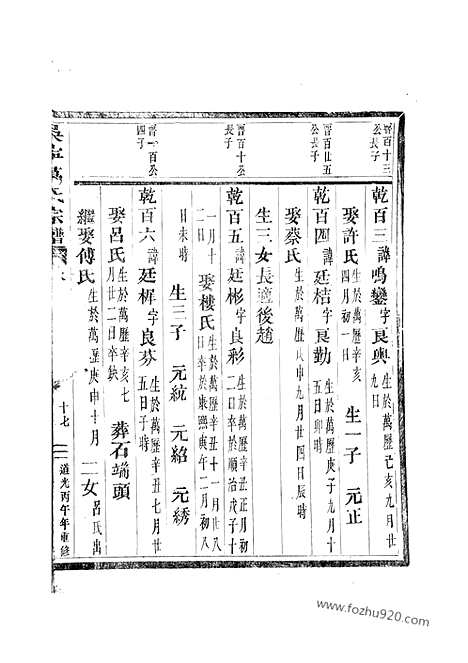 晋百十三公長子
乾百三諱鳴鑾字良輿生於萬歷己亥九月廿九日
娶許氏生於萬歷辛亥四月初一日 生一子 元正
晋百廿五公長子
乾百四諱廷桔字良勤生於萬歷庚子九月十五日卯時
娶蔡氏生於萬歷庚申九月廿四日辰時
生三女長適後趙
晋百十公長子
乾百五諱廷彬字良彩生於萬歷辛丑正月初二日卒於順治戊子十
一月十二日 娶樓氏生於萬歷辛丑十一月八日卒於康熙庚午二月初八
日未時 生三子 元統 元紹 元綉
晋一百公四子
乾百六諱廷樨字良芬生於萬歷辛丑七月廿五日子時
娶呂氏生於萬歷辛亥七月廿二日卒缺 葬石端頭
繼娶傅氏生於萬歷庚申十月 二女呂氏出
吳寧萬氏宗譜
十七
道光丙午年重修
www.fozhu920.com